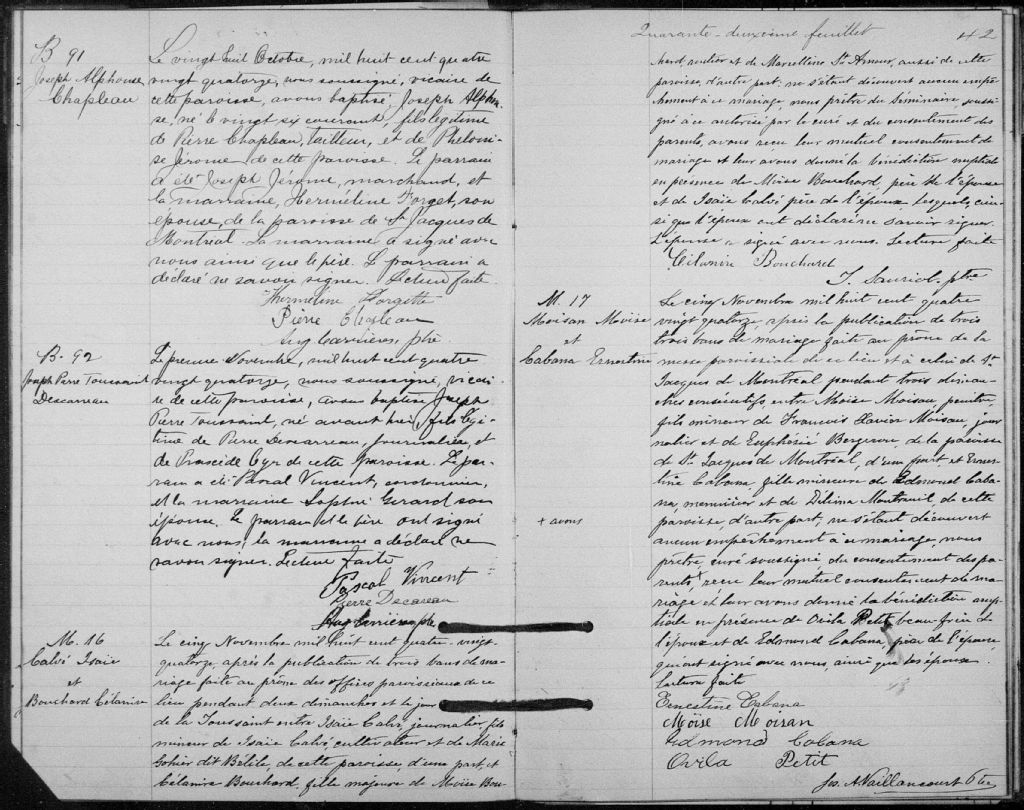 B 91
Joseph Alphonse
Chapleau
Le vingt huit Octobre, mil huit cent quatre
vingt quatorze, nous soussigné, vicaire de
cette paroisse, avons baptisé, Joseph Alphon-
se, né le vingt six courant, fils légitime
de Pierre Chapleau, tailleur, et de Philomè-
se Jérome de cette paroisse. Le parrain
a été Joseph Jérome, marchand, et
la marraine, Hermeline Forget, son
épouse, de la paroisse de St Jacques de
Montréal. La marraine a signé avec
nous ainsi que le père. Le parrain a
déclaré ne savoir signer. Lecture faite.
Hermeline Forgette
Pierre Chapleau
ptre
B. 92
Joseph Pierre Toussaint
Descarreau
Le premier Novembre, mil huit cent quatre
vingt quatorze, nous soussigné, vicai-
re de cette paroisse, avons baptisé Joseph
Pierre Toussaint, né avant hier, fils légi-
time de Pierre Descarreau, journalier, et
de Praxcède Cyr de cette paroisse. Le par-
rain a été Pascal Vincent, cordonnier,
et la marraine Sophie Gerard son
épouse. Le parrain et le père ont signé
avec nous; la marraine a déclaré ne
savoir signer. Lecture faite
Pascal Vincent
Pierre Decareau
ptre
M. 16
Calvé Isaïe
et
Bouchard Célanire
Le cinq Novembre mil huit cent quatre-vingt-
quatorze, après la publication de trois bans de ma-
riage faite au prône des offices paroissiaux de ce
lieu pendant deux dimanches et le jour
de la Toussaint entre Isaïe Calvé, journalier, fils
mineur de Isaïe Calvé, cultivateur et de Marie
Gohier dit Belile, de cette paroisse, d'une part, et
Célanire Bouchard, fille majeure de Moïse Bou-
Quarante-deuxième feuillet
42
chard, rentier et de Marcelline St Amour, aussi de cette
paroisse, d'autre part; ne s'étant découvert aucun empê-
chement à ce mariage, nous prêtre du Séminaire, soussi-
gné à ce autorisé par le curé et du consentement des
parents, avons reçu leur mutuel consentement de
mariage et leur avons donné la bénédiction nuptiale
en présence de Moïse Bouchard, père de l'épouse
et de Isaïe Calvé père de l'époux lesquels, ain-
si que l'époux ont déclaré ne savoir signer.
L'épouse a signé avec nous. Lecture faite
Célanire Bouchard
J. Sauriol, ptre
M. 17
Moisan Moïse
et
Cabana Ernestine
Le cinq Novembre mil huit cent quatre
vingt quatorze, après la publication de trois
trois bans de mariage faite au prône de la
messe paroissiale de ce lieu et à celui de St
Jacques de Montréal pendant trois diman-
ches consécutifs, entre Moïse Moisan, peintre,
fils mineur de Francois Xavier Moisan, jour
nalier et de Euphésié Bergeron de la paroisse
de St. Jacques de Montréal, d'une part, et Ernes-
tine Cabana, fille mineure de Edmond Caba-
na, menuisier et de Délima Montreuil de cette
paroisse, d'autre part; ne s'étant découvert
aucun empêchement à ce mariage, nous
prêtre, curé soussigné, du consentement des pa-
rents + reçu leur mutuel consentement de ma-
riage et leur avons donné la bénédiction nup-
tiale en présence de Ovila Petit beau-frère de
l'épouse et de Edmond Cabana, père de l'épouse
qui ont signé avec nous, ainsi que les époux.
Lecture faite
+ avons
Ernestine Cabana
Moïse Moisan
Edmond Cabana
Ovila Petit
Jos. A. Vaillancourt Ptre